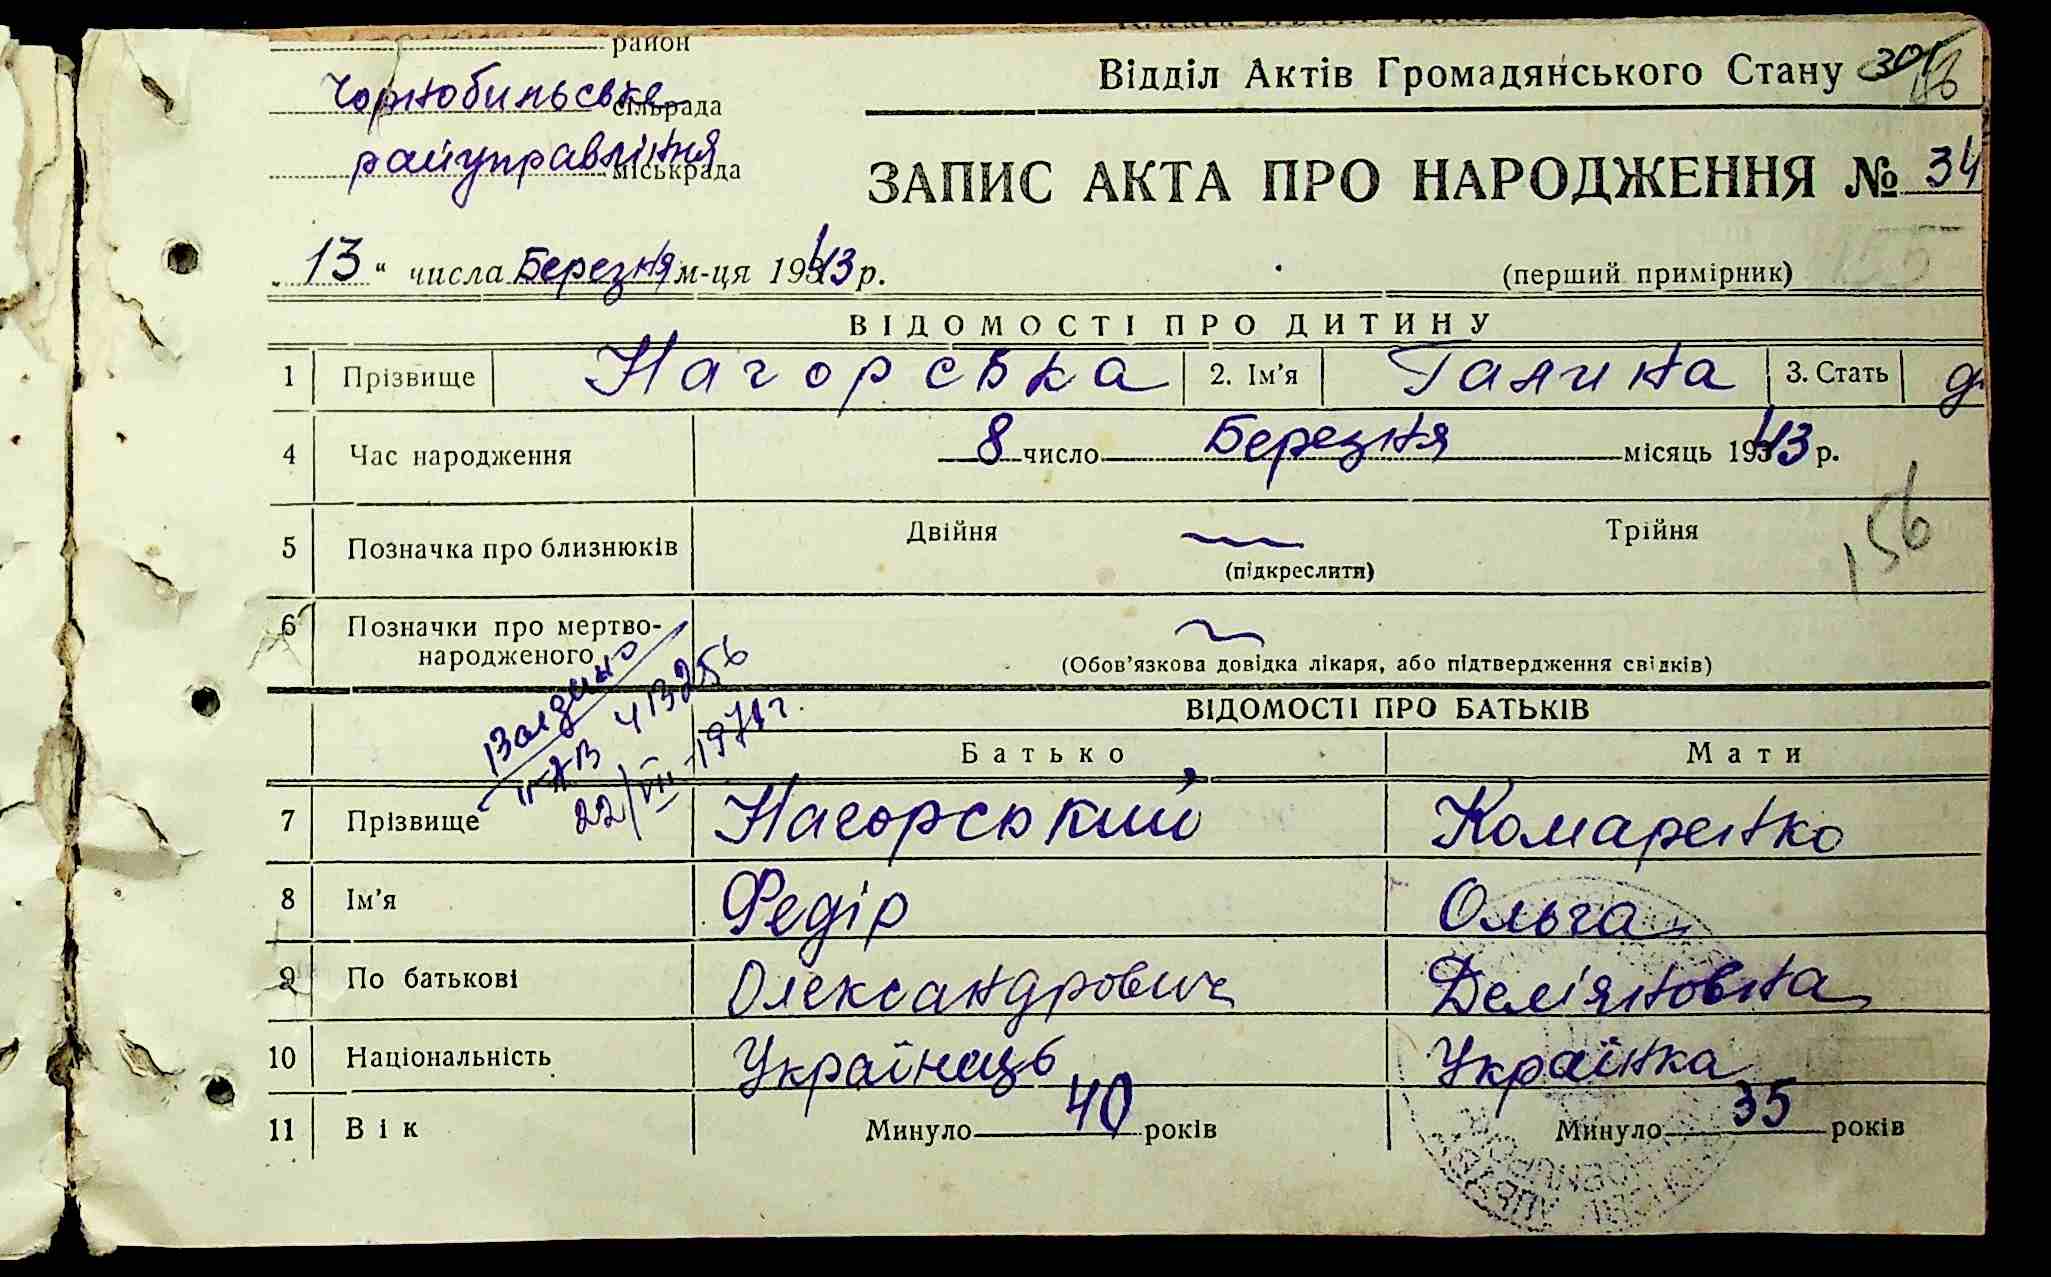 район
Відділ Актів Громадянського Стану
Чорнобильське сільрада
райуправління міськрада
ЗАПИС АКТА ПРО НАРОДЖЕННЯ № 34
„13“ числа Березня м-ця 1943 р.
(перший примірник)
155
ВІДОМОСТІ ПРО ДИТИНУ
1 Прізвище Нагорська 2. Ім'я Галина 3. Стать
4 Час народження 8 число Березня місяць 1943 р.
156
5 Позначка про близнюків Двійня Трійня
(підкреслити)
6 Позначки про мертво-
народженого
(Обов'язкова довідка лікаря, або підтвердження свідків)
413256
22/VII-1971г.
ВІДОМОСТІ ПРО БАТЬКІВ
Батько Мати
7 Прізвище Нагорський Комаренко
8 Ім'я Федір Ольга
9 По батькові Олександрович Дем'яновна
10 Національність Українець Українка
11 Вік Минуло 40 років Минуло 35 років